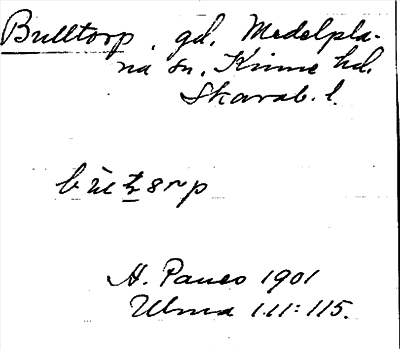 Bulltorp, gd, Medelpla-
na sn. Kinne hd.
Skarab. l.
A. Paues 1901
Ulma 111:115.